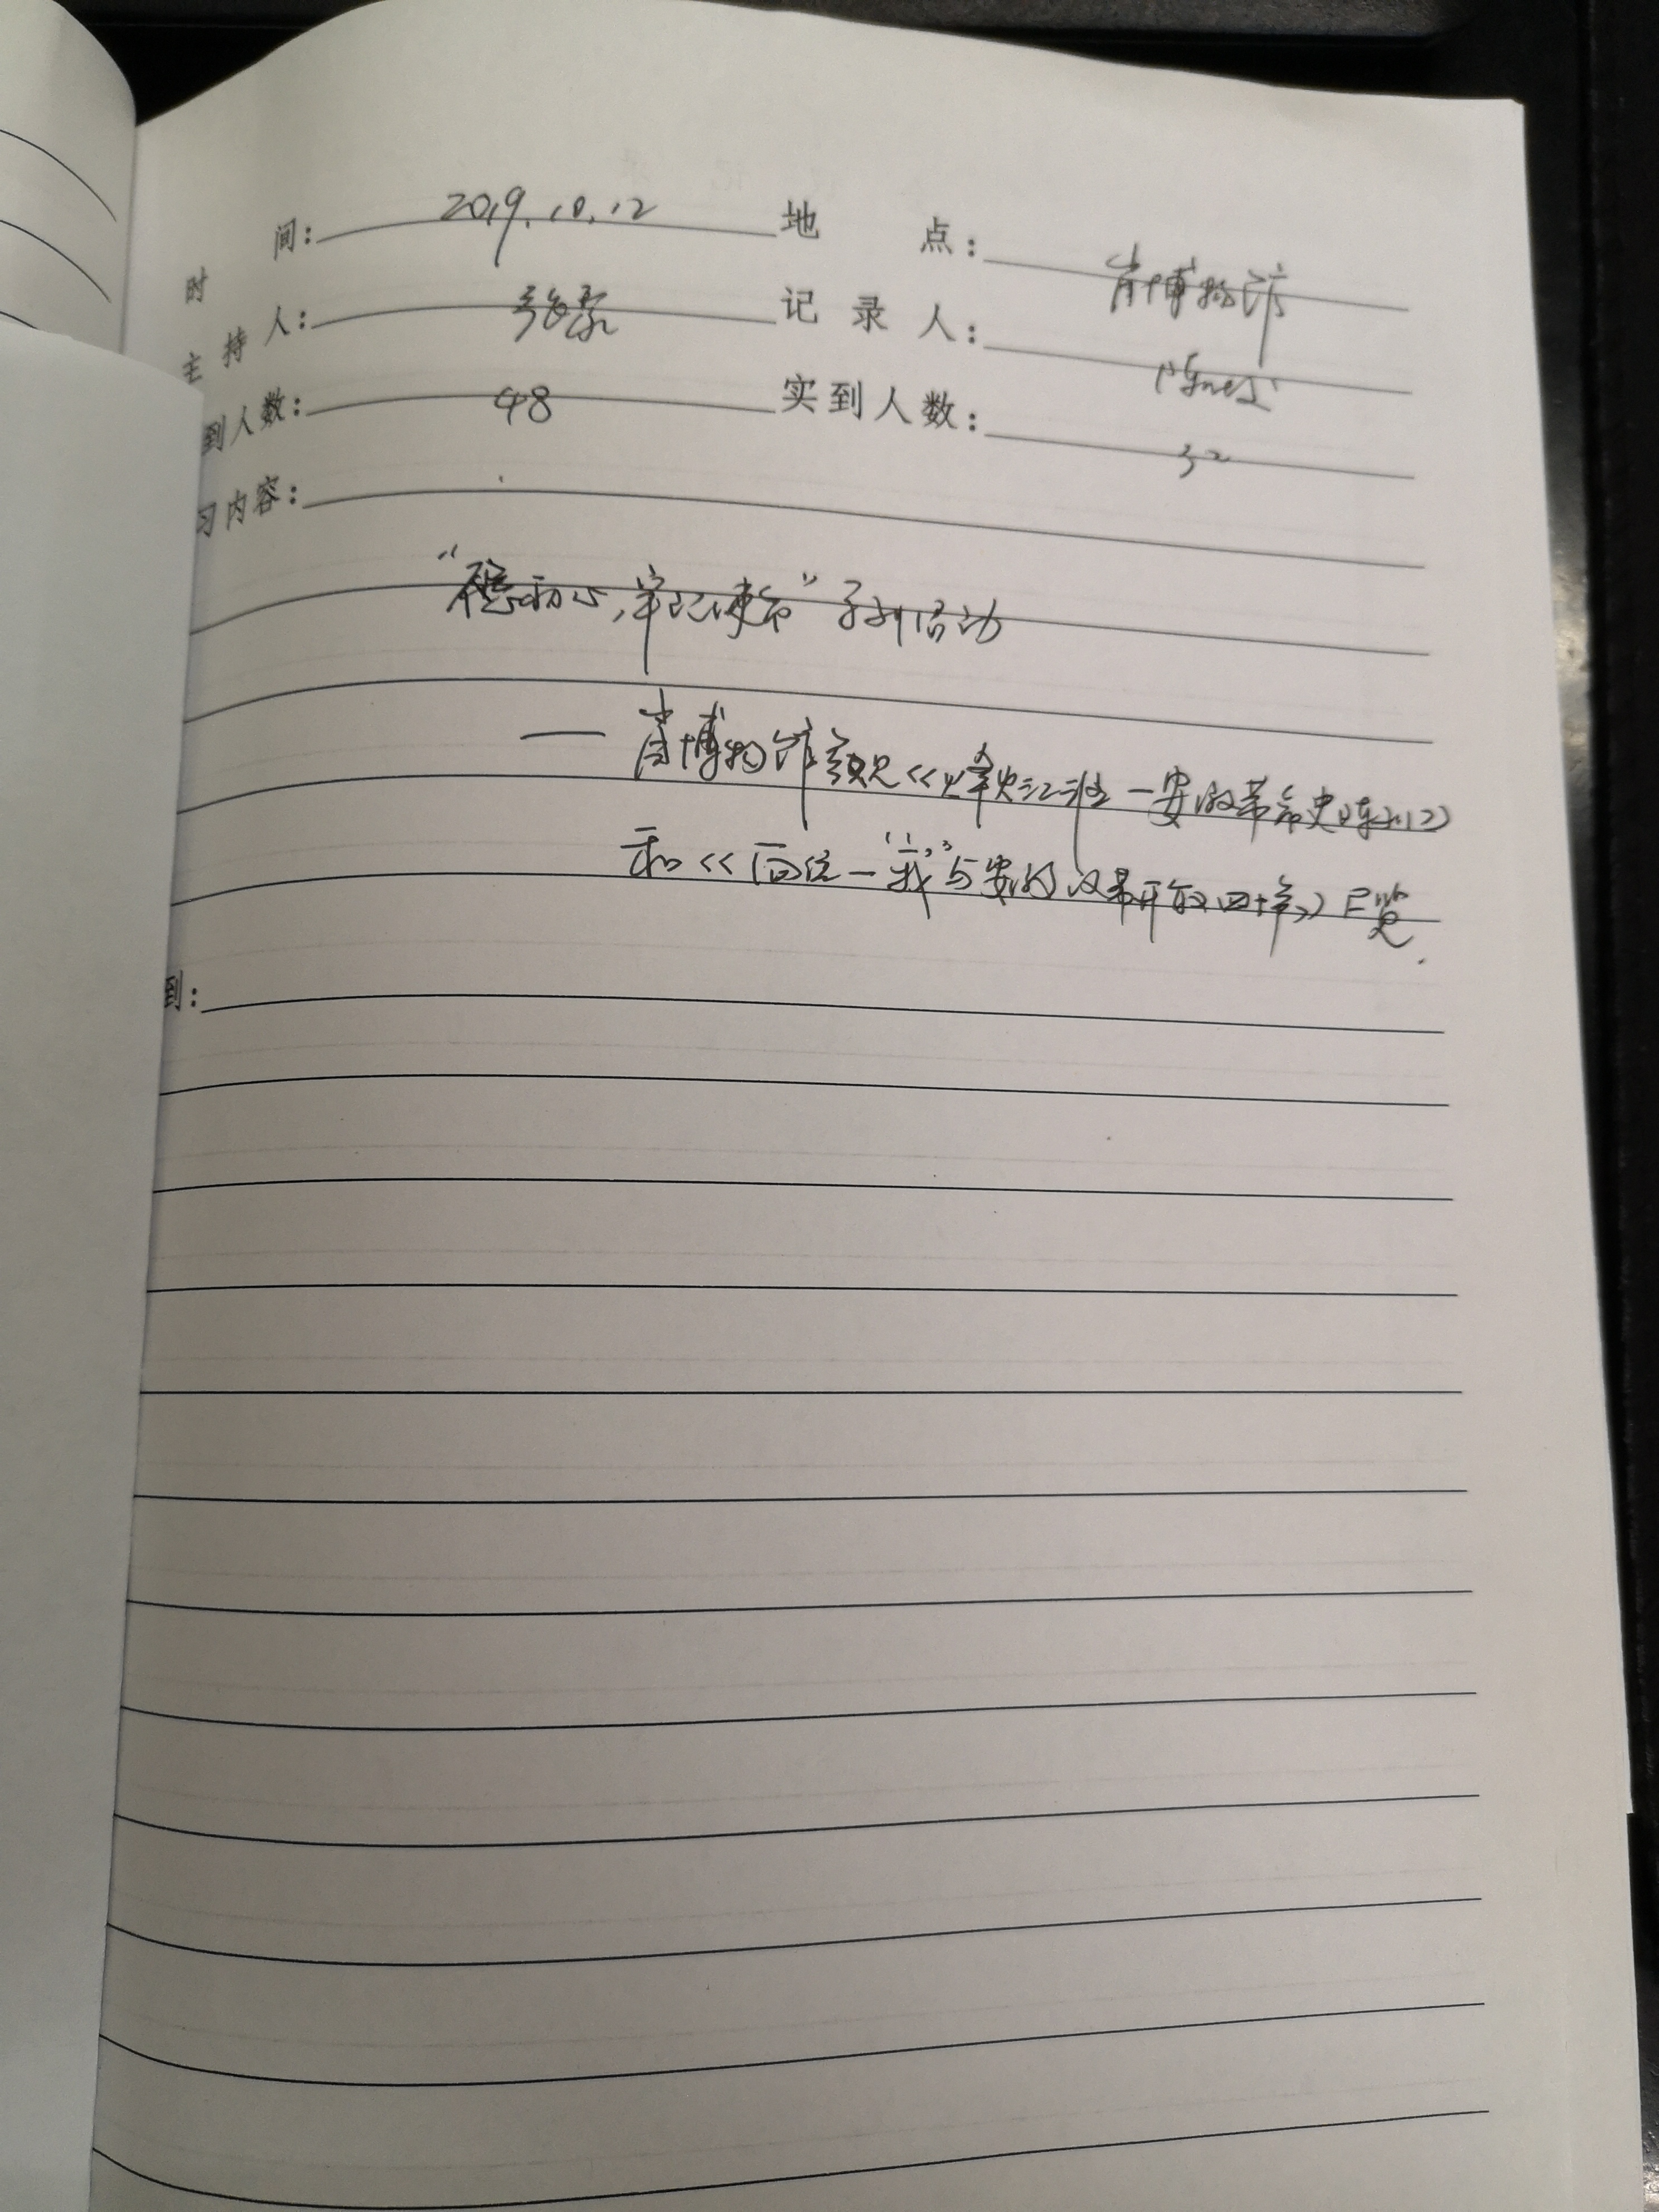 时 间： 2019.10.12 地 点： 省博物馆
主 持 人： 记 录 人： 陈
到人数： 48 实到人数： 32
习内容：
“不忘初心，牢记使命”系列活动
— 省博物馆参观《烽火江淮—安徽革命史陈列》
和《回信—“我”与安徽改革开放四十年》展览.
到：